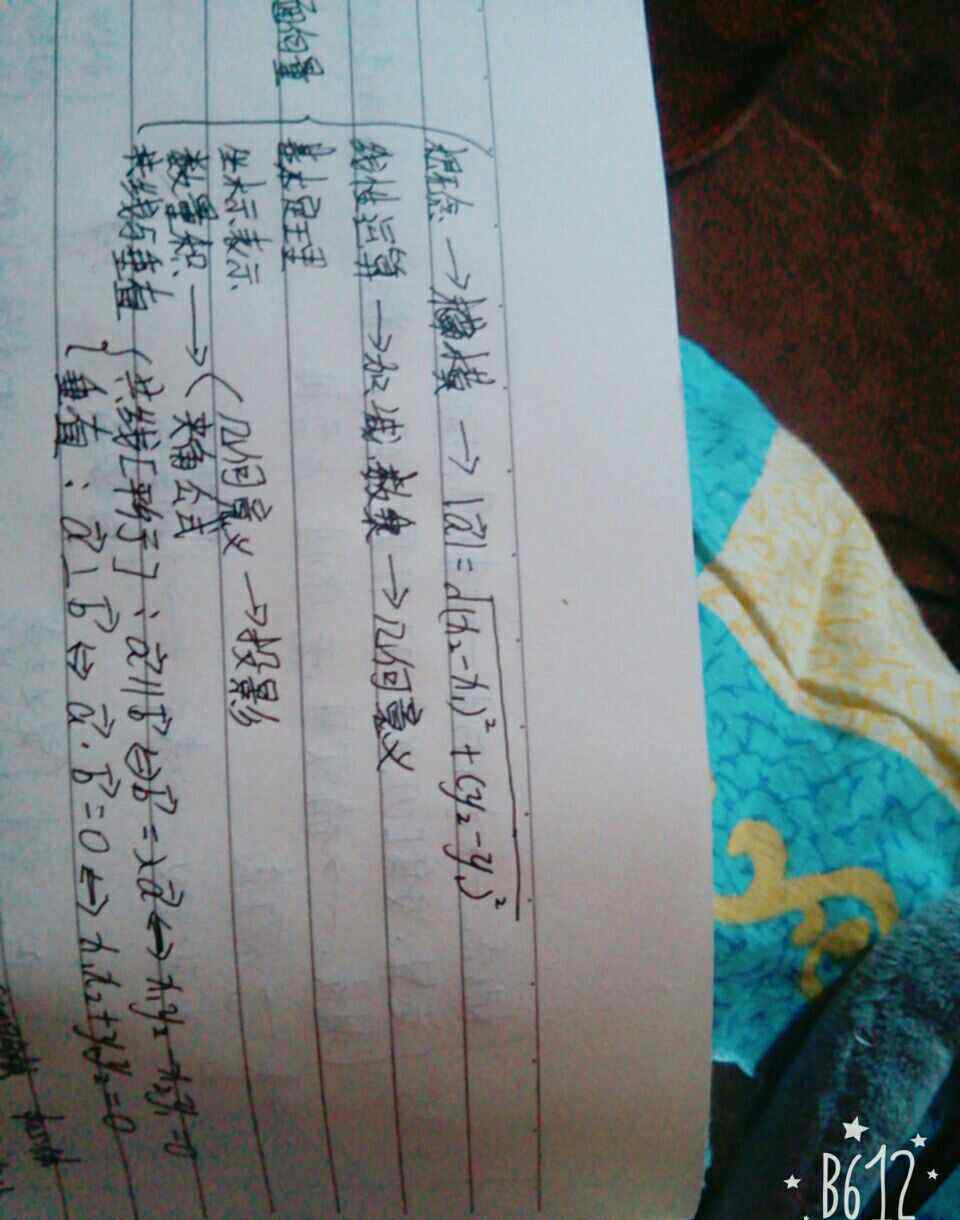 面向量
概念 → 模 → |a⃗| = √(x₂-x₁)² + (y₂-y₁)²
线性运算 → 加减数乘 → 几何意义
基本定理
坐标表示
数量积 → { 几何意义 → 投影
夹角公式
共线与垂直 { 共线[平行]: a⃗∥b⃗ ⇔ b⃗=λa⃗ ↔ x₁y₂-x₂y₁=0
垂直: a⃗⊥b⃗ ⇔ a⃗·b⃗=0 ↔ x₁x₂+y₁y₂=0
B612